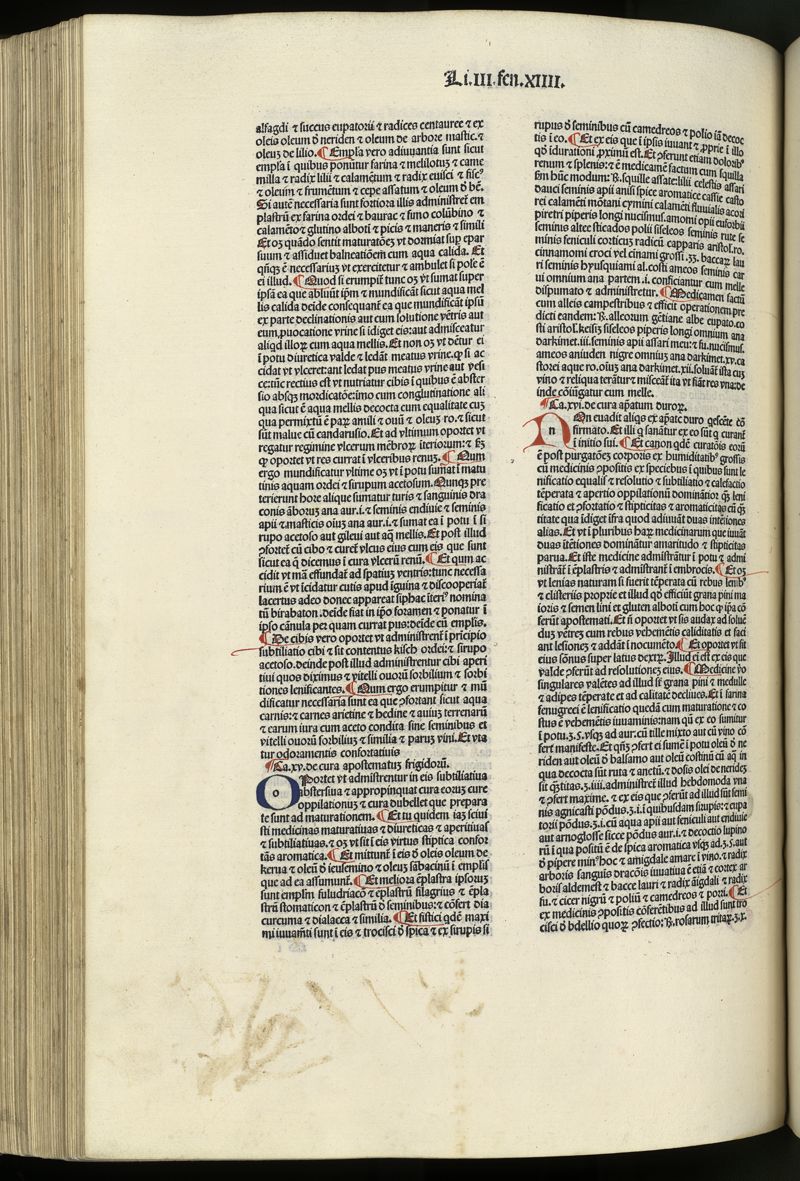 Li.III.fen.XIIII.
alfagdi ⁊ succus eupatorii ⁊ radices centauree ⁊ ex
oleis oleum ð neriden ⁊ oleum de arbore mastic.⁊
oleuȝ de lilio. ¶ Empl̃a vero adiuuantia sunt sicut
empl̃a ĩ quibus ponũtur farina ⁊ mellilotuȝ ⁊ came
milla ⁊ radix lilii ⁊ calamẽtum ⁊ radix euisci ⁊ fisc⁹
⁊ oleum ⁊ frumẽtum ⁊ cepe assatum ⁊ oleum ð bẽ.
Si autẽ necessaria sunt fortiora illis administret̃ em
plastrũ ex farina ordei ⁊ baurac ⁊ fimo colũbino ⁊
calamẽto⁊ glutino alboti ⁊ picis ⁊ maneris ⁊ simili
Et oȝ quãdo sentit maturatõeȝ vt dormiat sup̃ epar
suum ⁊ assiduet balneatiõem cum aqua calida. Et
qñqȝ ẽ necessariuȝ vt exercitetur ⁊ ambulet si posẽ ẽ
ei illud. ¶ Quod si erumpit̃ tunc oȝ vt sumat super
ip̃sa ea que abluũt ip̃m ⁊ mundificãt sicut aqua mel
lis calida deide consequant̃ ea que mundificãt ip̃sũ
ex parte declinationis aut cum solutione vẽtris aut
cum.puocatione vrine si idiget eis:aut admisceatur
aliqd illoꝝ cum aqua mellis. Et non oȝ vt dẽtur ei
ĩ potu diuretica valde ⁊ ledãt meatus vrine.ꝙ si ac
cidat vt vlceret:ant ledat pus meatus vrine aut vesi
ce:tũc rectius est vt nutriatur cibis ĩ quibus ẽ abster
sio absqȝ mordicatõe:imo cum conglutinatione ali
qua sicut ẽ aqua mellis decocta cum equalitate cuȝ
qua permixtũ ẽ parꝝ amili ⁊ ouũ ⁊ oleuȝ ro.⁊ sicut
sũt malue cũ candarusio. Et ad vltimum oportet vt
regatur regimine vlcerum mẽbroꝝ iteriorum:⁊ fȝ
ꝙ oportet vt res currat ĩ vlceribus renuȝ. ¶ Num
ergo mundificatur vltime oȝ vt ĩ potu sumat̃ ĩ matu
tinis aquam ordei ⁊ sirupum acetosum. Nunqȝ pre
terierunt hore alique sumatur turis ⁊ sanguinis dra
conis ãboruȝ ana aur.i.⁊ seminis endiuie ⁊ seminis
apii ⁊ masticis oiuȝ ana aur.i.⁊ sumat ea ĩ potu ĩ si
rupo acetoso aut gileui aut aq̃ mellis. Et post illud
ꝯfortet̃ cũ cibo ⁊ curet̃ vlcus eius cum eis que sunt
sicut ea q̃ dicemus ĩ cura vlcerũ renũ. ¶ Et qum ac
cidit vt mã effundat̃ ad spatiuȝ ventris:tunc necessa
rium ẽ vt icidatur cutis apud iguina ⁊ discooperiat̃
lacertus adeo donec appareat siphac iteri⁹ nomina
tũ birabaton.deide fiat in ip̃o foramen ⁊ ponatur ĩ
ip̃so cãnula per quam currat pus:deide cũ emplis.
¶ De cibis vero oportet vt administrent̃ ĩ pricipio
subtiliatio cibi ⁊ sit contentus kisch ordei:⁊ sirupo
acetoso.deinde post illud administrentur cibi aperi
tiui quos diximus ⁊ vitelli ouorũ sorbilium ⁊ sorbi
tiones lenificantes. ¶ Num ergo erumpitur ⁊ mũ
dificatur necessaria sunt ea que ꝯfortant sicut aqua
carnis:⁊ carnes arietine ⁊ hedine ⁊ auiuȝ terrenarũ
⁊ earum iura cum aceto condita sine seminibus et
vitelli ouorũ sorbiliuȝ ⁊ similia ⁊ paruȝ vini. Et vta
tur odoramentis confortatiuis
¶Ca.xv.de cura apostematuȝ frigidorũ.
OPortet vt administrentur in eis subtiliatiua
abstersiua ⁊ appropinquat cura eorus cure
oppilationuȝ ⁊ cura dubellet que prepara
te sunt ad maturationem. ¶ Et tu quidem iaȝ sciui
sti medicinas maturatiuas ⁊ diureticas ⁊ aperitiuas
⁊ subtiliatiuas.⁊ oȝ vt sit ĩ eis virtus stiptica confor
tãs aromatica. ¶ Et mittunt̃ ĩ eis ð oleis oleum de
kerua ⁊ oleũ ð ieusemino ⁊ oleuȝ sãbacinũ ĩ emplis
que ad ea assumunt̃. ¶ Et meliora ẽplastra ipsoruȝ
sunt empl̃m fuludriacõ⁊ ẽplastrũ filagrius ⁊ ẽpla
strũ stomaticon ⁊ ẽplastrũ ð seminibus:⁊ cõfert dia
curcuma ⁊ dialacca ⁊ similia. ¶ Et fistici qdẽ maxi
mi iuuam̃ti sunt ĩ eis ⁊ trocisci ð spica ⁊ ex sirupis si
rupus ð seminibus cũ camedreos ⁊ polio iã decoc
tis ĩ eo. ¶ Et ex eis que ĩ ipsis iuuant ⁊ ꝓprie ĩ illo
qð idurationi ꝓximũ est. Et ꝓferunt etiam dolorib⁹
renum ⁊ splenis:⁊ ẽ medicamẽ factum cum squilla
fm hũc modum:℞.squille assate:lilii celestis assari
dauci seminis apii anisi spice aromatice cassie casto
rei calamẽti mõtani cymini calamẽti fluuialis acori
piretri piperis longi nucismus.amomi opii euforbii
seminis altee sticados polii siseleos seminis rute se
minis feniculi corticus radicũ capparis aristol.ro.
cinnamomi croci vel cinami grossi.ȝȝ.baccaꝝ lau
ri seminis hyusquiami al.costi ameos seminis car
ui omnium ana partem.i. conficiantur cum melle
dispumato ⁊ administretur. ¶ Medicamen factũ
cum alleis campestribus ⁊ efficit operationem pre
dicti eandem:℞.alleorum gẽtiane albe eupato.co
sti aristol.keisiȝ siseleos piperis longi omnium ana
darkimet.iii.seminis apii assari meu:⁊ su.nucismus.
ameos aniuden nigre omniuȝ ana darkimet.xv.ca
storei aque ro.oiuȝ ana darkimet.xii.soluãt̃ ista cuȝ
vino ⁊ reliqua terãtur:⁊ misceãt̃ ita vt fiãt res vna:de
inde cõiũgatur cum melle.
¶Ca.xvi.de cura ap̃atum duroꝝ.
NOn euadit aliqs ex ap̃ate duro geñte cõ
firmato. Et illi q̃ sanãtur ex eo sũt q̃ curant̃
ĩ initio sui. ¶ Et canon qdẽ curatõis eorũ
ẽ post purgatõeȝ corporis ex humiditatib⁹ grossis
cũ medicinis ꝯpositis ex speciebus ĩ quibus sunt le
nificatio equalis ⁊ resolutio ⁊ subtiliatio ⁊ calefactio
tẽperata ⁊ apertio oppilationũ dominãtior q̃ȝ leni
ficatio et ꝯfortatio ⁊ stipticitas ⁊ aromaticitas cũ q̃ȝ
titate qua idiget ifra quod adiuuãt duas itẽtiones
alias. Et vt ĩ pluribus haꝝ medicinarum que iuuãt
duas itẽtiones dominãtur amaritudo ⁊ stipticitas
parua. Et iste medicine admistrãtur ĩ potu ⁊ admi
nistrãt̃ ĩ ẽplastris ⁊ admistrant̃ ĩ embrocis. ¶ Et oȝ
vt lenias naturam si fuerit tẽperata cũ rebus lenib⁹
⁊ clisteriis proprie et illud qð efficiũt grana pini ma
ioris ⁊ semen lini et gluten alboti cum hoc ꝙ ip̃a cõ
ferũt apostemati. Et ñ oportet vt sis audax ad soluẽ
duȝ vẽtreȝ cum rebus vehemẽtis caliditatis et faci
ant lesioneȝ ⁊ addãt ĩ nocumẽto. ¶ Et oportet vt sit
eius sõnus super latus dextꝝ. Illud ei est ex eis que
valde ꝯferũt ad resolutioneȝ eius. ¶ Medicine vo
singulares valẽtes ad illud st̃ grana pini ⁊ medulle
⁊ adipes tẽperate et ad calitatẽ decliues. Et ĩ farina
fenugreci ẽ lenificatio quedã cum maturatione ⁊ co
stus ẽ vehemẽtis iuuaminis:nam qũ ex eo sumitur
ĩ potu.ȝ.s.vsqȝ ad aur.cũ tille mixto aut cũ vino cõ
fert manifeste. Et qñȝ ꝯfert ei sumẽ ĩ potu oleũ ð ne
riden aut oleũ ð balsamo aut oleũ costinũ cũ aq̃ in
qua decocta sũt ruta ⁊ anetũ.⁊ dosis olei de nerideȝ
sit q̃ȝtitas.ȝ.iiii.administret̃ illud hebdomoda vna
⁊ ꝯfert maxime. ⁊ ex eis que ꝯferũt ad illud sũt semi
nis agnicasti põdus.ȝ.i.ĩ quibusdam sirupis:⁊ eupa
torii põdus.ȝ.i.cũ aqua apii aut feniculi aut endiuie
aut arnoglosse sicce põdus aur.i.⁊ decoctio lupino
rũ ĩ qua positũ ẽ de spica aromatica vsqȝ ad.ȝ.s.aut
ð pipere min⁹hoc ⁊ amigdale amare ĩ vino.⁊ radix
arboris sanguis dracõis iuuatiua ẽ etiã ⁊ cortex ar
boris aldemest ⁊ bacce lauri ⁊ radix ãigdali ⁊ radix
fu.⁊ cicer nigrũ ⁊ poliũ ⁊ camedreos ⁊ porri. ¶ Et
ex medicinis ꝯpositis cõferẽtibus ad illud sunt tro
cisci ð bdellio quoꝝ ꝯfectio:℞.rosarum tritaꝝ.ȝ.x.